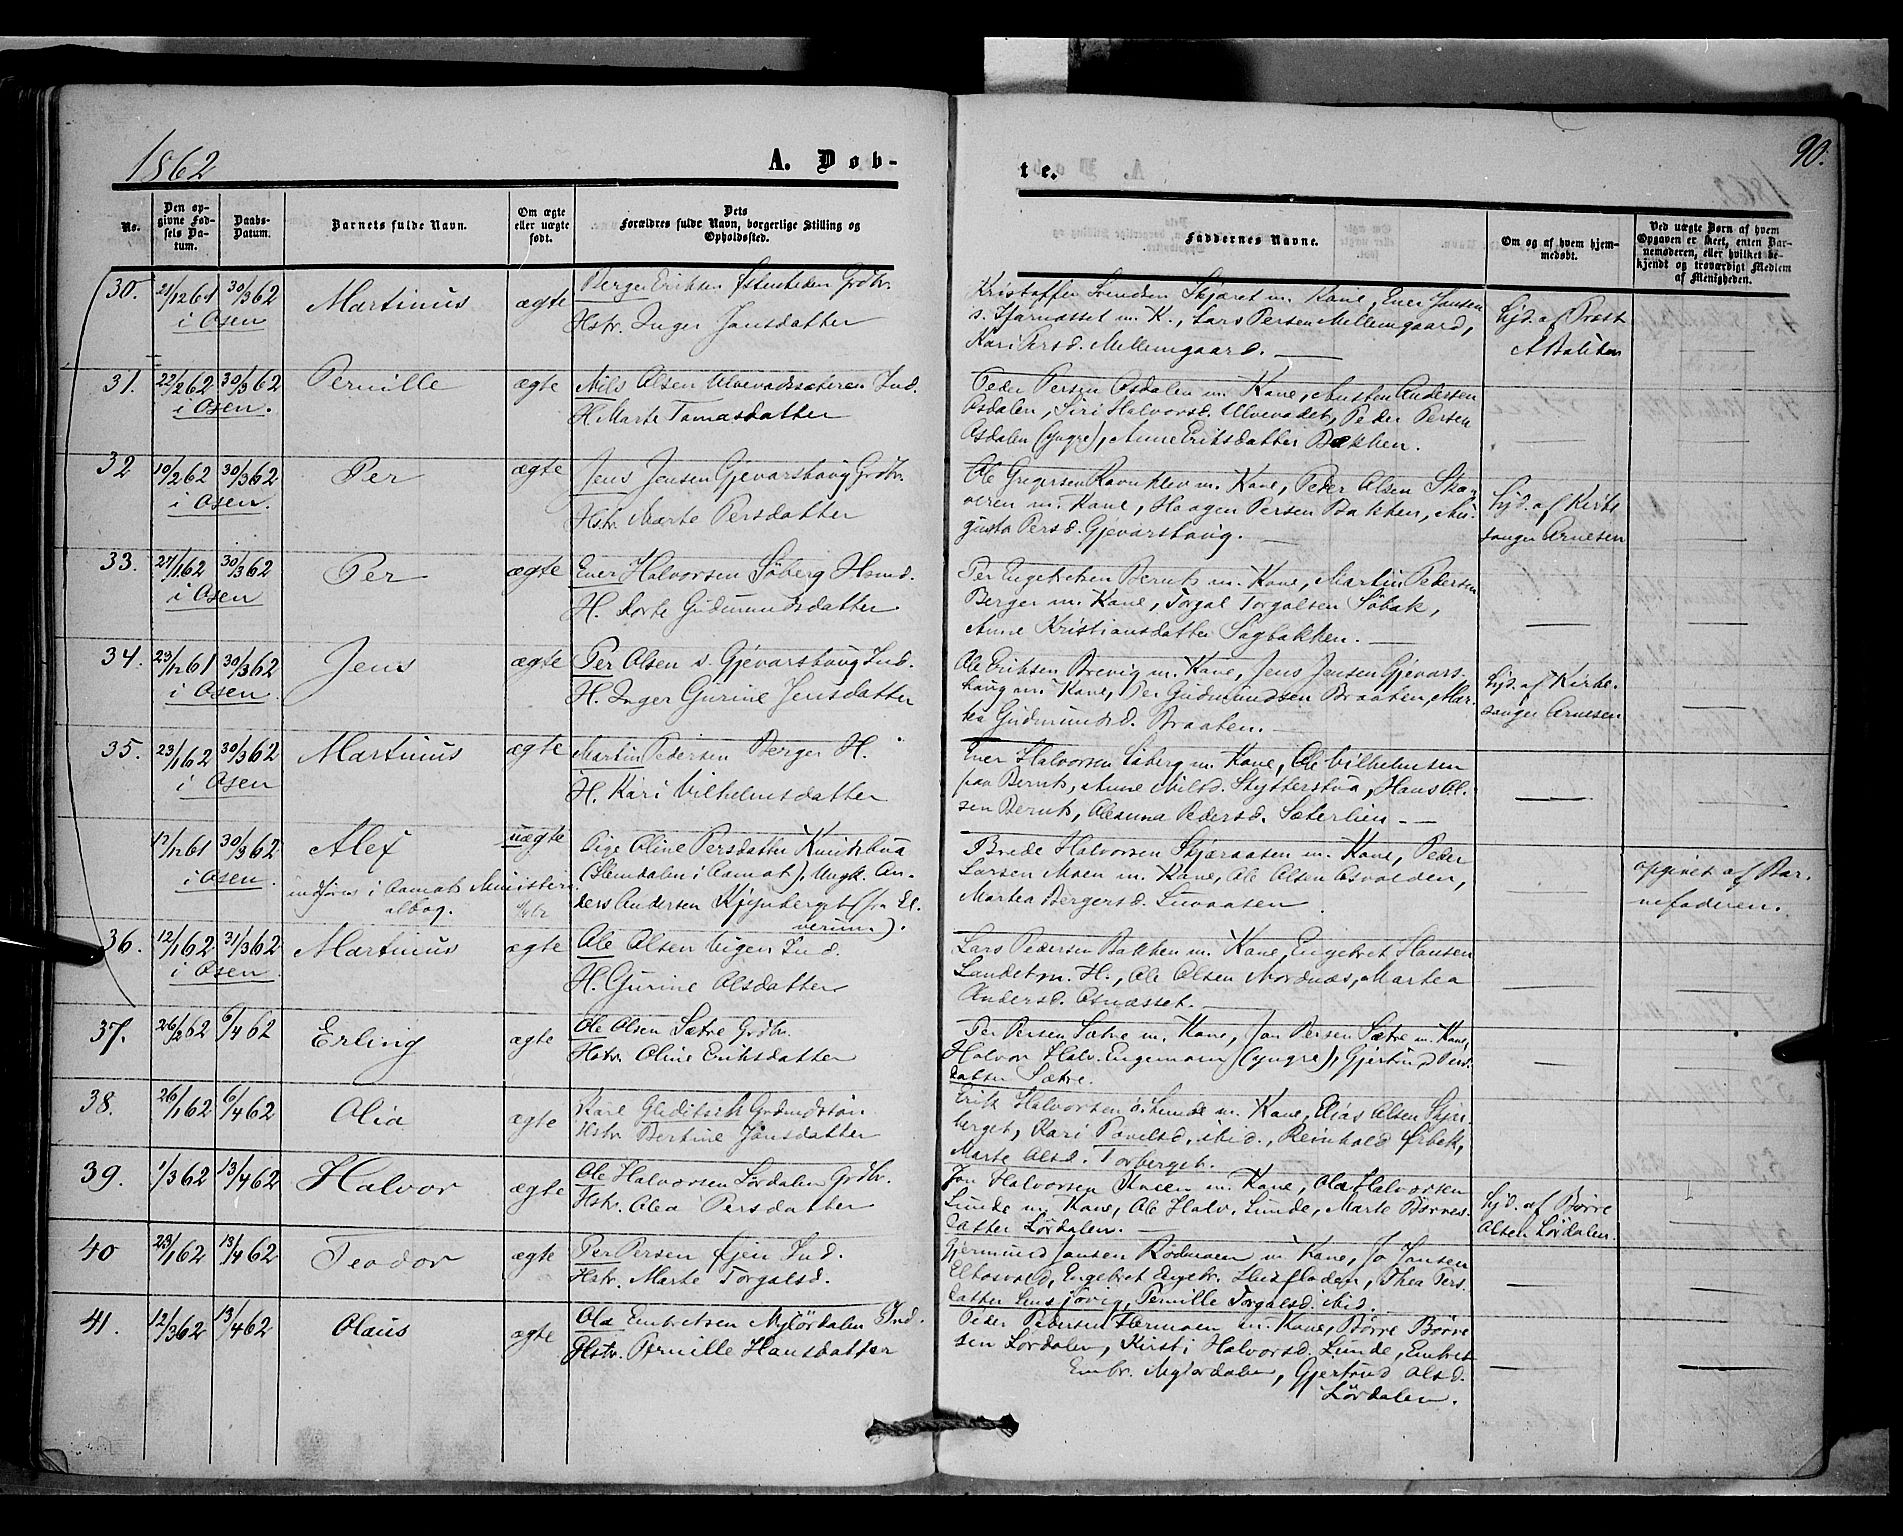 1862
A. Døb-
te.
90.
No.
Den opgivne Fødsels Datum.
Daabs-Datum.
Barnets fulde Navn.
Om ægte eller uægte født.
Dets Forældres fulde Navn, borgerlige Stilling og Opholdssted.
Faddernes Navne.
Om og af hvem hjemmedøbt.
Ved uægte Børn af hvem Opgaven er skeet, enten Barnemoderen, eller hvilket bekjendt og troværdigt Medlem af Menigheden.
30. 21/12 61 30/3 62 Martinus ægte Berger Eriksen Østenheden Grdbr.
i Osen Hstr. Inger Jansdatter
Kristoffer Svendsen Skjæret m. Kone, Ener Jansen
s. m. K., Lars Persen Mellemgaard,
Kari Persd. Mellemgaard. —
hjd. af Præst
A Baliken
—
31. 22/2 62 30/3 62 Pernille ægte Nils Olsen Ulvevadsæteren Ind.
i Osen. H. Marte Tamasdatter
Peder Persen Osdalen m. Kone, Austen Andersen
Osdalen, Siri Halvorsd. Ulvevadet, Peder Persen
Osdalen (yngre), Anne Eriksdatter Bækken.
—
32 10/2 62 30/3 62 Per ægte Jens Jensen Gjevarshaug Grdbr.
i Osen. Hstr. Marte Persdatter
Ole Gregersen Ravnklev m. Kone, Peder Olsen Skaveren
m. Kone, Haagen Persen Bakken, Au-
gusta Persd. Gjevarshaug. —
hjd. af Kirke
sanger Arnesen
—
33. 27/1 62 30/3 62 Per ægte Ener Halvorsen Søberg Hsmd.
i Osen H. Dorte Gudmundsdatter
Per Engebretsen Beruts m. Kone, Martin Pedersen
Berger m. Kone, Torgal Torgalsen Søbak,
Anne Kristiansdatter Sagbakken. —
—
34. 23/12 61 30/3 62 Jens ægte Per Olsen s. Gjevarshaug Ind.
i Osen. H. Inger Gurine Jensdatter
Ole Eriksen Brevig m. Kone, Jens Jansen Gjevars-
haug m. Kone, Per Gudmundsen Braaten, Mar-
tea Gudmundsd. Braaten. —
hjd. af Kirke-
sanger Arnesen
—
35. 23/1 62 30/3 62 Martinus ægte Martin Pedersen Berger H.
i Osen H. Kari Vilhelmsdatter
Ener Halvorsen Søberg m. Kone, Ole Vilhelmsen
paa Beruts, Anne Nilsd. Skytterstua, Hans Ol-
sen Beruts, Olesuna Pedersd. Sæterlien. —
—
17/12 61 30/3 62 Alex uægte Pige Oline Persdatter
i Osen (Slemdalen i Aamot), Ungk. An-
indføres i Aamots Ministeri- ders Andersen Kjynberget (fra El-
albog. verum).
Brede Halvorsen Skjæraasen m. Kone, Peder
Larsen Moen m. Kone, Ole Olsen Osvolden,
Martea Bergersd. Luvaasen
opgivet af Bar-
nefaderen.
36. 12/1 62 31/3 62 Martinus ægte Ole Olsen Vigen Ind.
i Osen H. Gurine Olsdatter
Lars Pedersen Bakken m. Kone, Engebret Hansen
Landet m. H., Ole Olsen Nordnæs, Martea
Andersd. Osnæsset. —
—
37. 26/2 62 6/4 62 Erling ægte Ole Olsen Sætre Grdbr.
Hstr. Oline Eriksdatter
Per Persen Sætre m. Kone, Jon Persen Sætre m. Kone,
Halvor Halv. Engemoen (yngre), Gjertrud Pers-
datter Sætre.
—
38. 26/1 62 6/4 62 Olia ægte Karl Gleditsch Grdmdssøn
Hstr Bertine Jansdatter
Erik Halvorsen ø. Lunde m. Kone, Elias Olsen Skjæ-
berget, Kari Povelsd. ibid., Reinhold Ørbek,
Marte Olsd. Torberget.
39. 1/3 62 13/4 62 Halvor ægte Ole Halvorsen Lørdalen Grdbr.
Hstr. Olea Persdatter
Jon Halvorsen m. Kone, Ola Halvorsen
Lunde m. Kone, Ole Halv. Lunde, Marte Børres-
datter Lørdalen. —
hjd. af Børre
Olsen Lørdalen.
40 23/1 62 13/4 62 Teodor ægte Per Persen Ind.
Hstr. Marte Torgalsd.
Gjermund Jansen Rødmoen m. Kone, Jo Jansen
Eltosvold, Engebret Engebr. Thea Pers-
datter Lensjøvig, Pernille Torgalsd. ibid.
—
41. 12/3 62 13/4 62 Olaus ægte Ola Embretsen Nylørdalen Ind.
Hstr. Pernille Hansdatter
Peder Pedersen m. Kone, Børre Børre
sen Lørdalen, Kirsti Halvorsd. Lunde, Embret
Embr. Nylørdalen, Gjertrud Olsd.
Lørdalen.
—